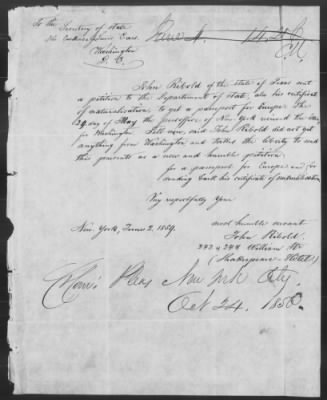 To the
Secretary of State
Washington
D. C.
John Ribold of the state of Texas sent
a petition to the Department of state, also his certificat
of naturalisation to get a passport for Europe. The
24 day of May the postoffice of New York mind the
for Washington till now, said John Ribold did not get
anything from Washington and takes the liberty to send
this presents as a new and humble petition
for a passport for Europe and for
sending back his certificate of naturalisation
Very respectfully Your
most humble servant
New York, June 2. 1859.
John Ribold.
242 & 244 William Str
(Shakespeare-Hotel)
Com. Pleas New York City,
Oct 24. 1850.